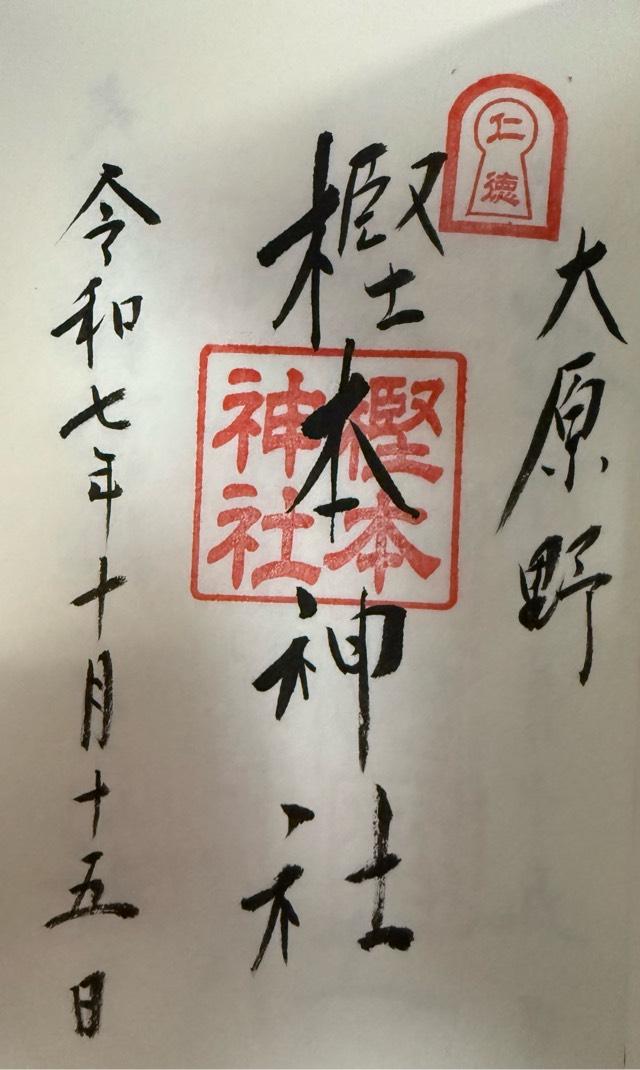 大原野
仁徳
樫本神社
樫本
神社
令和七年十月十五日